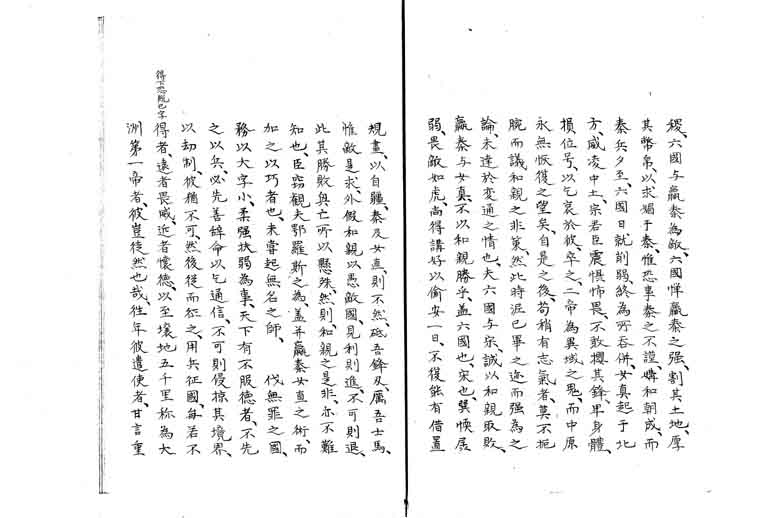 稷、六國与嬴秦為敵、六國憚嬴秦之强、割其土地、厚
其幣帛、以求媚于秦、惟恐事秦之不謹、媾和朝成、而
秦兵夕至、六國日就削弱、終為所吞併、女真起于北
方、威凌中土、宗君臣震惧怖畏、不敢攖其鋒、卑身體、
損位号、以乞哀於彼、卒之、二帝為異域之鬼、而中原
永無恢復之望矣、自是之後、苟稍有志氣者、莫不扼
腕而議和親之非策、然此特泥已畢之迹、而强為之
論、未達於変通之情也、夫六國与宋、誠以和親取敗、
嬴秦与女真、不以和親勝乎、盖六國也、宋也、巽愞居
弱、畏敵如虎、尚得講好以偸安一日、不復能有借置
規畫、以自疆、秦及女直則不然、砥吾鋒刄、厲吾士馬、
惟敵是求、外假和親、以愚敵國、見利則進、不可則退、
此其勝敗興亡所以懸殊、然則和親之是非、亦不難
知也、臣竊觀夫鄂羅斯之為、盖并嬴秦女直之術、而
加之以巧者也、未嘗起無名之師、伐無罪之國、
務以大字小、柔强扶弱為事、天下有不服德者、不先
之以兵、必先善辞命以乞通信、不可則侵掠其境界、
以刧制、彼猶不可、然後従而征之、用兵征國、毎若不
得者、遠者畏威、近者懷德、以至壌地五千里、称為大
洲第一帝者、彼豈徒然也哉、往年彼遣使者、甘言重
得下恐脱已字